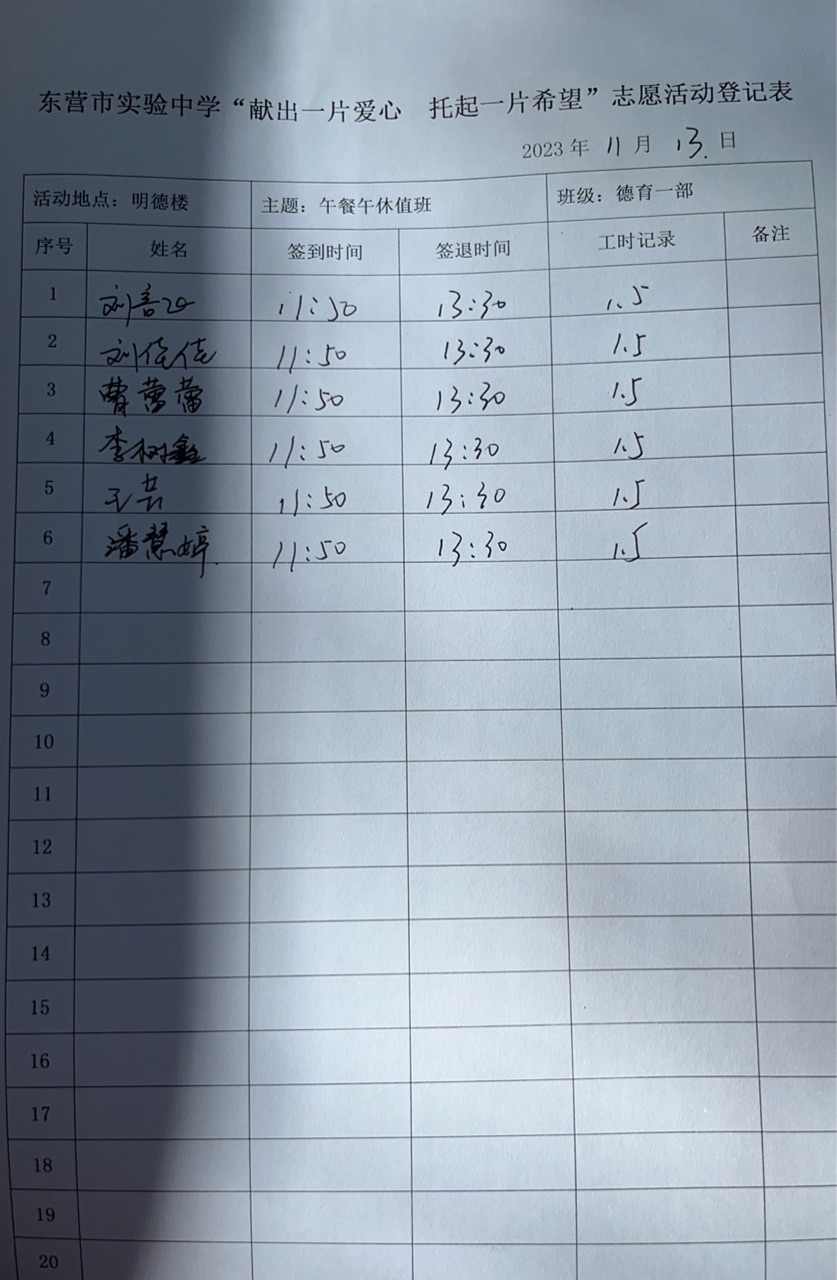 东营市实验中学“献出一片爱心 托起一片希望”志愿活动登记表
2023年 11月 13.日
活动地点：明德楼 主题：午餐午休值班 班级：德育一部
序号 姓名 签到时间 签退时间 工时记录 备注
1 刘 11:50 13:30 1.5
2 刘佳佳 11:50 13:30 1.5
3 曹蕾蕾 11:50 13:30 1.5
4 李树鑫 11:50 13:30 1.5
5 王芸 11:50 13:30 1.5
6 潘慧婷. 11:50 13:30 1.5
7
8
9
10
11
12
13
14
15
16
17
18
19
20